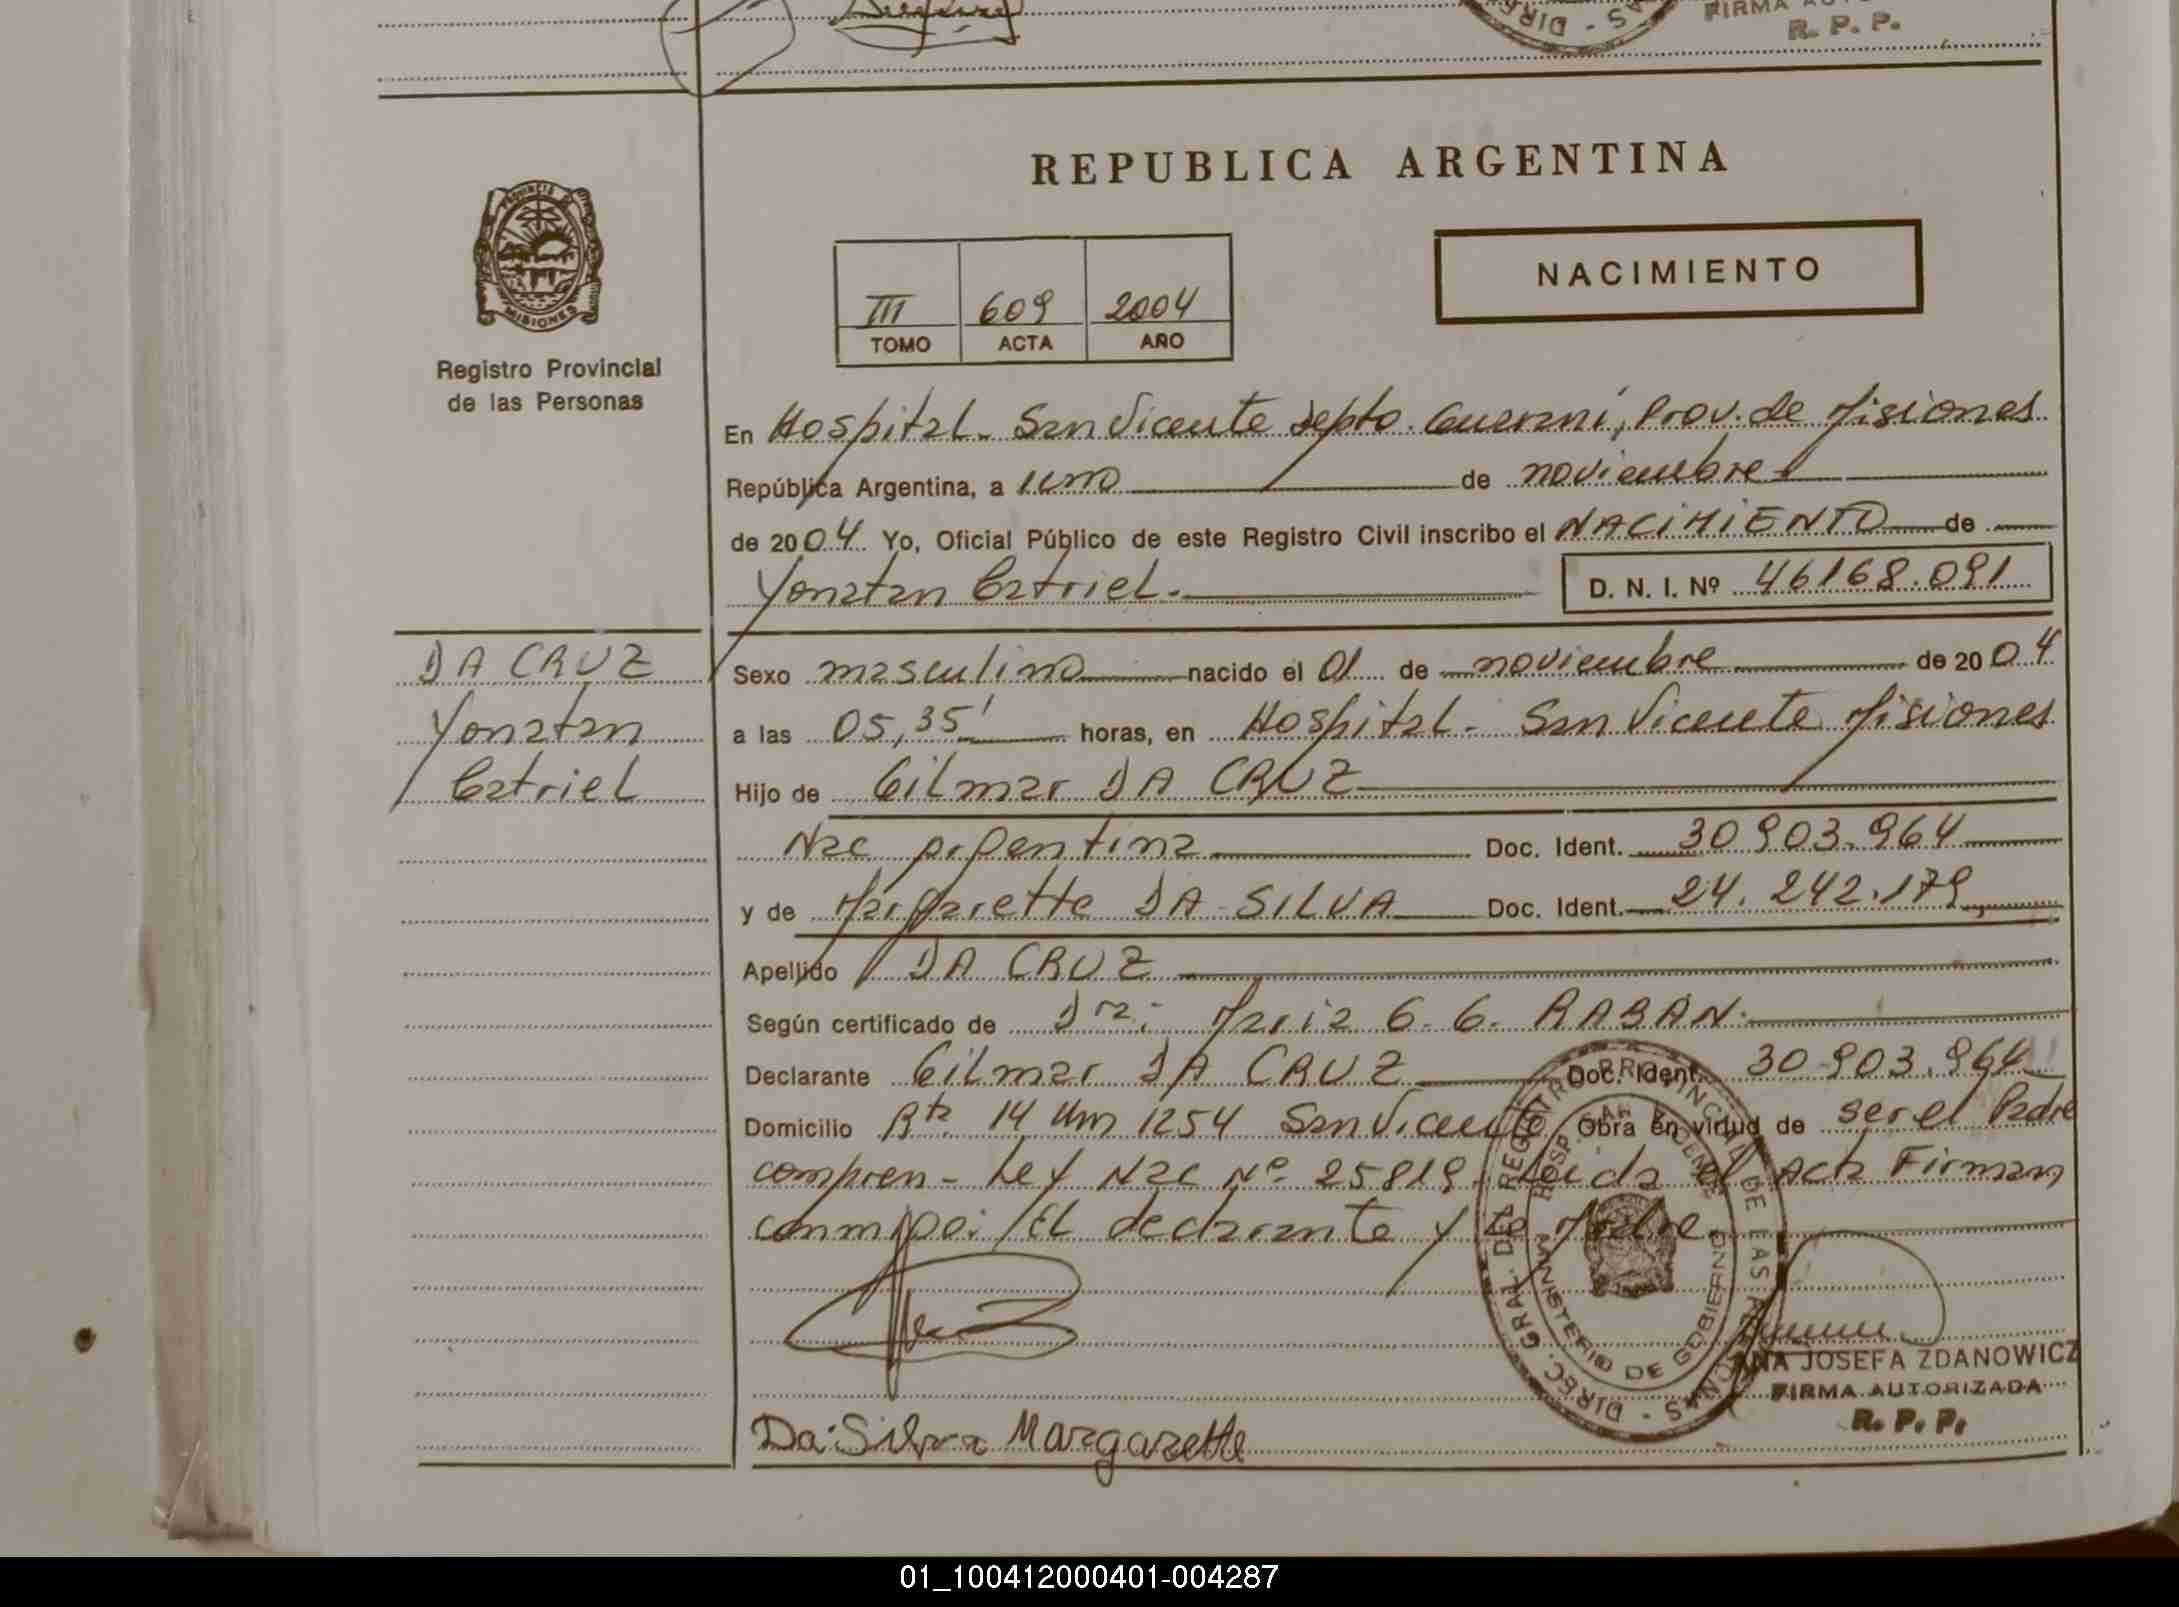 FIRMA
R. P. P.
REPUBLICA ARGENTINA
PROVINCIA
MISIONES
Registro Provincial
de las Personas
NACIMIENTO
III 609 2004
TOMO ACTA AÑO
En Hospital - San Vicente Depto. Guaraní, Prov. de Misiones
República Argentina, a uno de noviembre
de 2004 Yo, Oficial Público de este Registro Civil inscribo el NACIMIENTO de
Yonatan Catriel.
D. N. I. Nº 46168.091
DA CRUZ
Yonatan
Catriel
Sexo masculino nacido el 01 de noviembre de 2004
a las 05,35' horas, en Hospital - San Vicente Misiones
Hijo de Gilmar DA CRUZ
Nac Argentina Doc. Ident. 30903.964
y de Margarette DA SILVA Doc. Ident. 24.242.179
Apellido DA CRUZ
Según certificado de Dra: Maria G. G. RABAN.
Declarante Gilmar DA CRUZ Doc. Ident. 30903.964
Domicilio Rta 14 Km 1254 San Vicente Obra en virtud de ser el Padre
compren - Ley Nac Nº 25819 - Leida el Acta Firman
conmigo: El declarante y la Madre
DIREC. GRAL. DEL REGISTRO PROVINCIAL DE LAS PERSONAS
MINISTERIO DE GOBIERNO
ANA JOSEFA ZDANOWICZ
FIRMA AUTORIZADA
R. P. P.
Da Silva Margarette
01_100412000401-004287